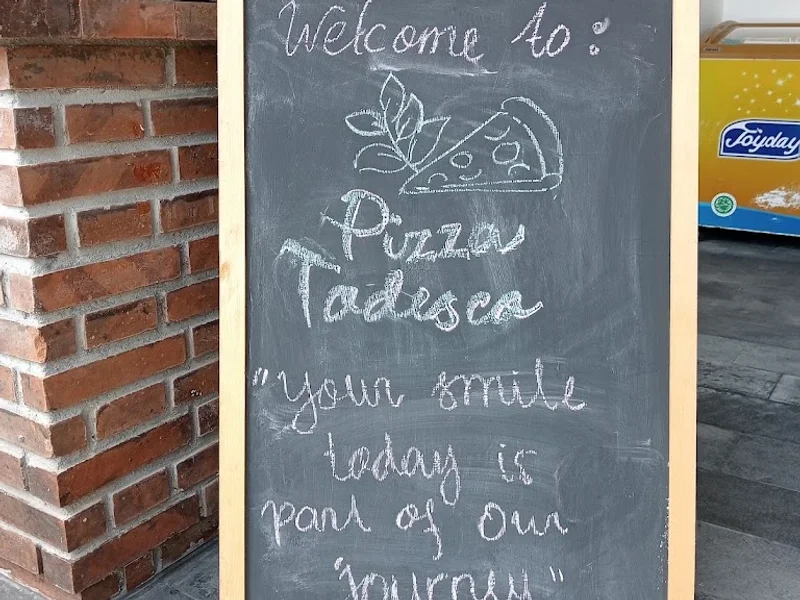 Welcome to:
Pizza
Tadesca
"your smile
today is
part of our
journey"
Joyday